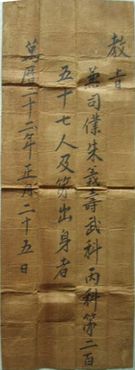 教旨
兼司僕朱義壽武科丙科第二百
五十七人及第出身者
萬曆二十二年正月二十五日